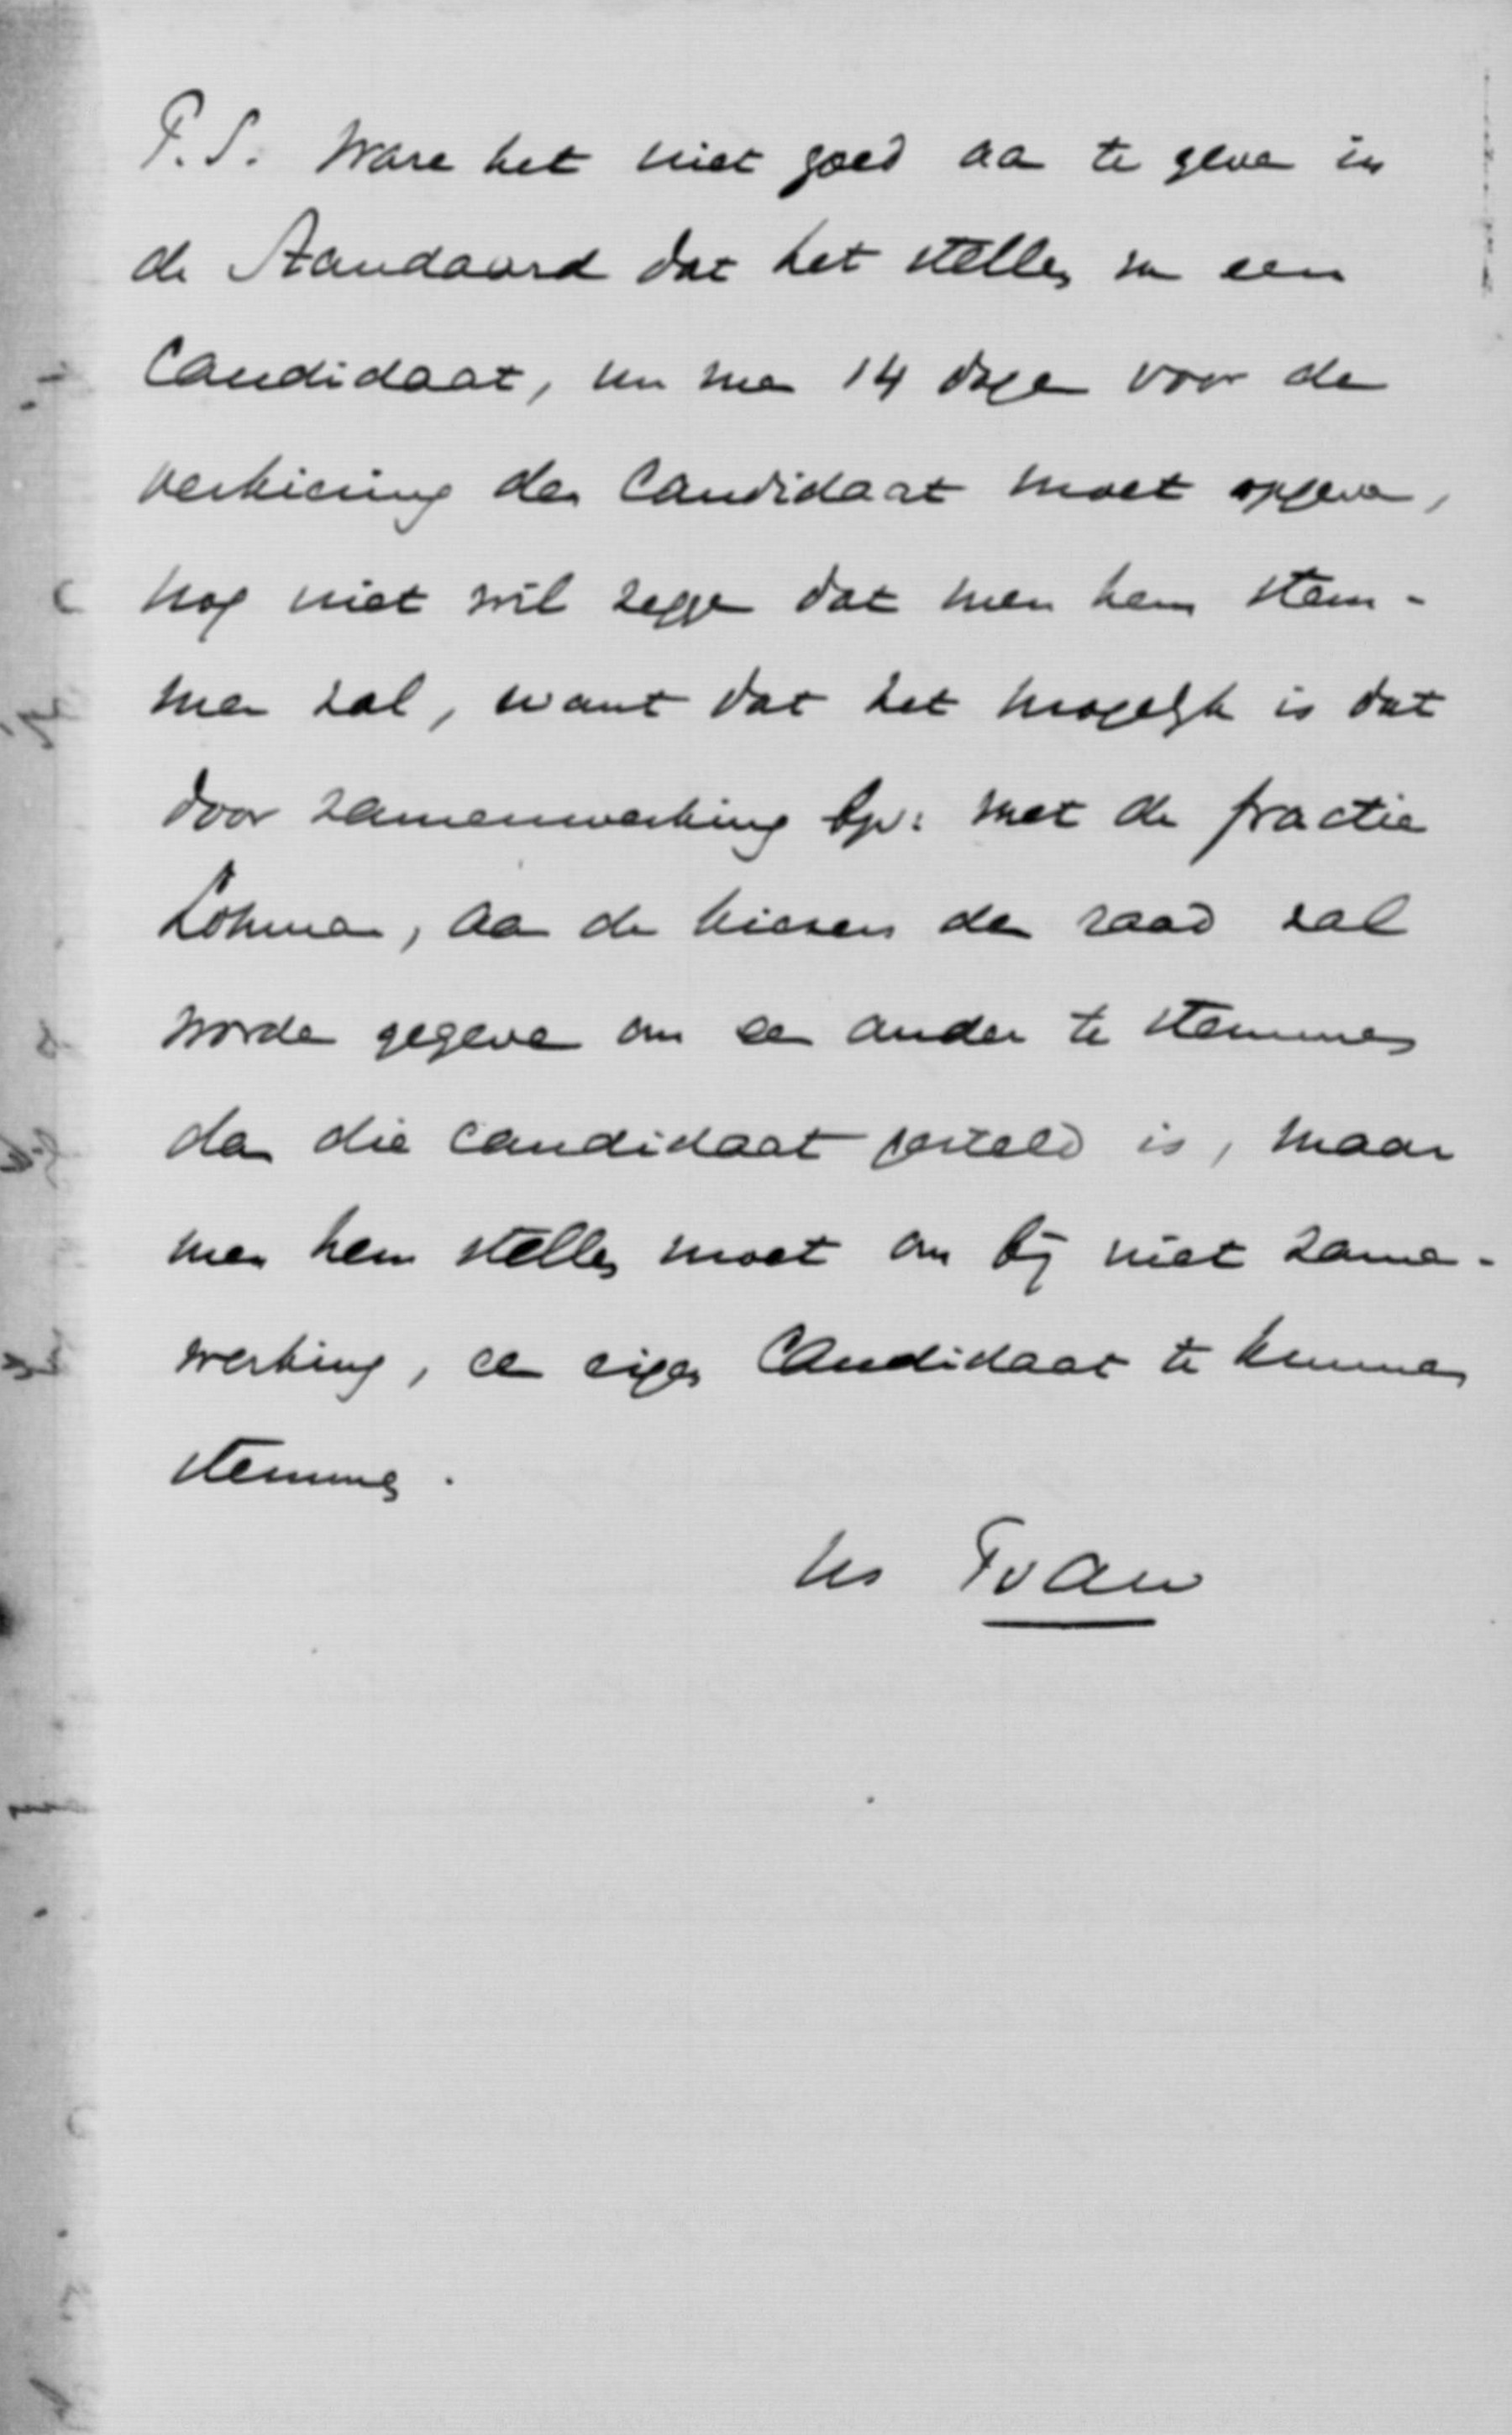 P.S. Ware het niet goed aan te geven in
de Standaard dat het stellen van een
Candidaat, nu men 14 dagen voor de
verkiezing den Candidaat moet opgeven,
nog niet wil zeggen dat men hem stem-
men zal, want dat het mogelijk is dat
door samenwerking bijv: met de fractie
Lohman, aan de kiezers den raad zal
worden gegeven om een ander te stemmen
dan die candidaat gesteld is, maar
men hem stellen moet om bij niet samen-
werking, een eigen Candidaat te kunnen
stemmen.
tus